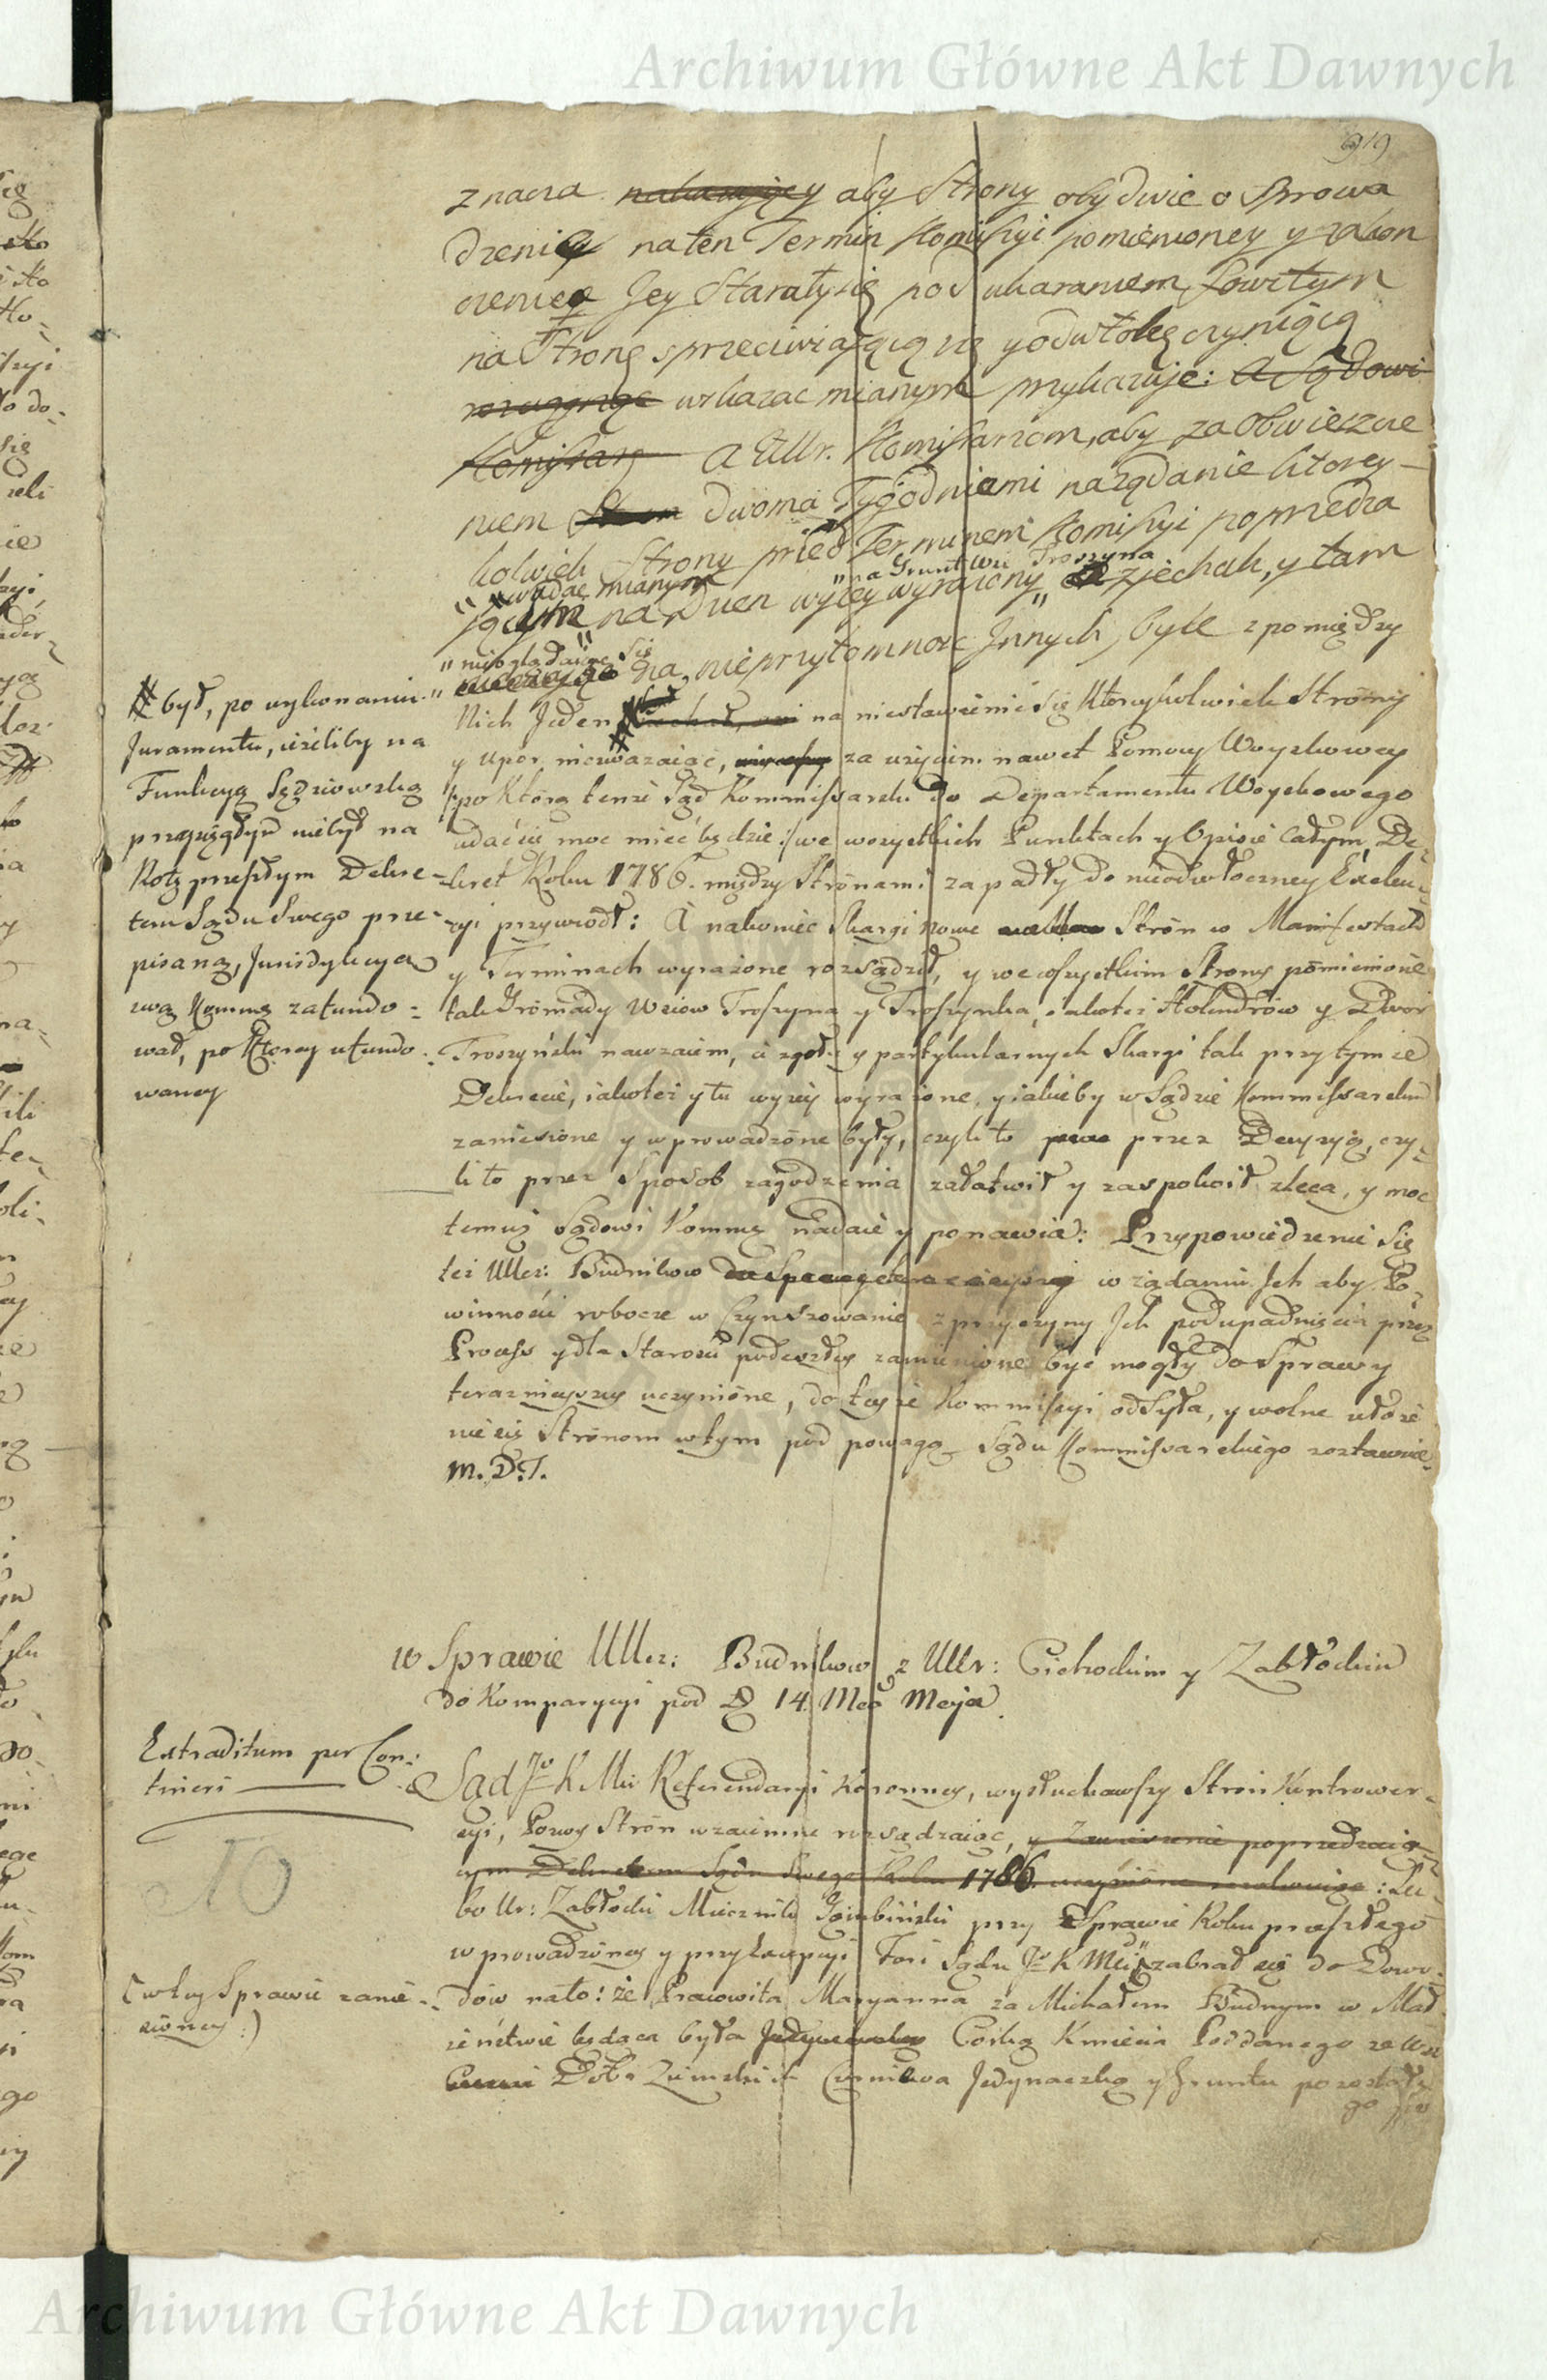 Archiwum Główne Akt Dawnych
919
znacza nakazujący aby Strony obydwie o Sprowa
dzenie na ten Termin Komissyi pomienioney y zakon
czenie Jey Starały się pod ukaraniem sowitym
na Stronę sprzeciwiaiącą się y odwłokę czyniącą
wskazac mianym przykazuje: A Sądowi
Komissar A UUr. Komissarzom, aby za Obwieszcze
niem dwoma Tygodniami na żądanie ktorey
kolwiek Strony przed Terminem Komissyi poprzedza
" wydac mianym " na Grunt Wsi Troszyna
iącym na Dzien wyżey wyrażony " zjechali, y tam
" nieoglądaiąc się
na nieprzytomnosc Jnnych, byle z pomiędzy
Nich Jeden na niestawienie się Ktoreykolwiek Strony
y upor nieuważaiąc, za użyciem nawet Pomocy Woyskowey
/:po Którą tenże Sąd Kommissarski do Departamentu Woyskowego
udać się moc mieć będzie:/ we wszystkich Punktach y Opisie całym, De-
kret Roku 1786. między Stronami zapadły do nieodwłoczney Exeku-
cyi przywiodł: A nakoniec Skargi nowe Strón w Manifestach
y Terminach wyrażone rozsądził, y we wszystkim Strony pomienione
tak Gromady Wsiow Troszyna y Troszynka, iakoteż Holendrów y Dwor
Troszyński nawzaiem, a zgoła y partykularnych Skargi tak przy tymże
Dekrecie, iakoteż y tu wyżey wyrażone, y iakieby w Sądzie Kommissarskim
zaniesione y wprowadzone były, czyli to przez Decyzyą, czy-
li to przez Sposób zagodzenia załatwił y zaspokoił zleca, y moc
temuż Sądowi Kommu nadaie y ponawia: Przypowiedzenie się
też UUrr: Budnikow w żądaniu Jch aby Po-
winności robocze w Czynszowanie z przyczyny Jch podupadnięcia przez
Process y dla Starości podeszłey zamienione byc mogły do Sprawy
teraznieyszey uczynione, do teyże Kommissyi odsyła, y wolne ułoże
nie się Stronom w tym pod powagą Sądu Kommissarskiego zostawuie.
M. D. J.
# był, po wykonaniu
Juramentu, ieżeliby na
Funkcyą Sędziowską
przysięgłym niebył na
Rotę przeszłym Dekre-
tem Sądu Swego prze-
pisaną, Jurisdykcyą
swą Kommą zafundo-
wał, po Ktorey ufundo-
waney
w Sprawie UUrr: Budnikow z UUr: Cichockim y Zabłockim
do Komparycyi pod D 14. Mca Meja.
Extraditum per Con-
tineri
Sąd Jo K Mci Referendaryi Koronney, wysłuchawszy Strón Kontrower-
syi, Pozwy Strón wzaiemne rozsądzaiąc, y Zawieszenie poprzedzaią-
cym Dekretem Sądu Swego Roku 1786. uczynione rozwiązuiąc: Lu-
bo Ur: Zabłocki Miecznik Gąbiński przy Sprawie Roku przeszłego
wprowadzoney y przy Excepcyi Fori Sądu Jo K Mci zabrał się do Dowo-
dów nato: że Pracowita Maryanna za Michałem Budnym w Mał-
żeństwie będąca była Córką Kmiecia Poddanego ze Wsi
Dóbr Ziemskich Czernikowa Jedynaczką y Gruntu pozostałe
go po
( w tey Sprawie zanie-
sioney:)
10
Archiwum Główne Akt Dawnych